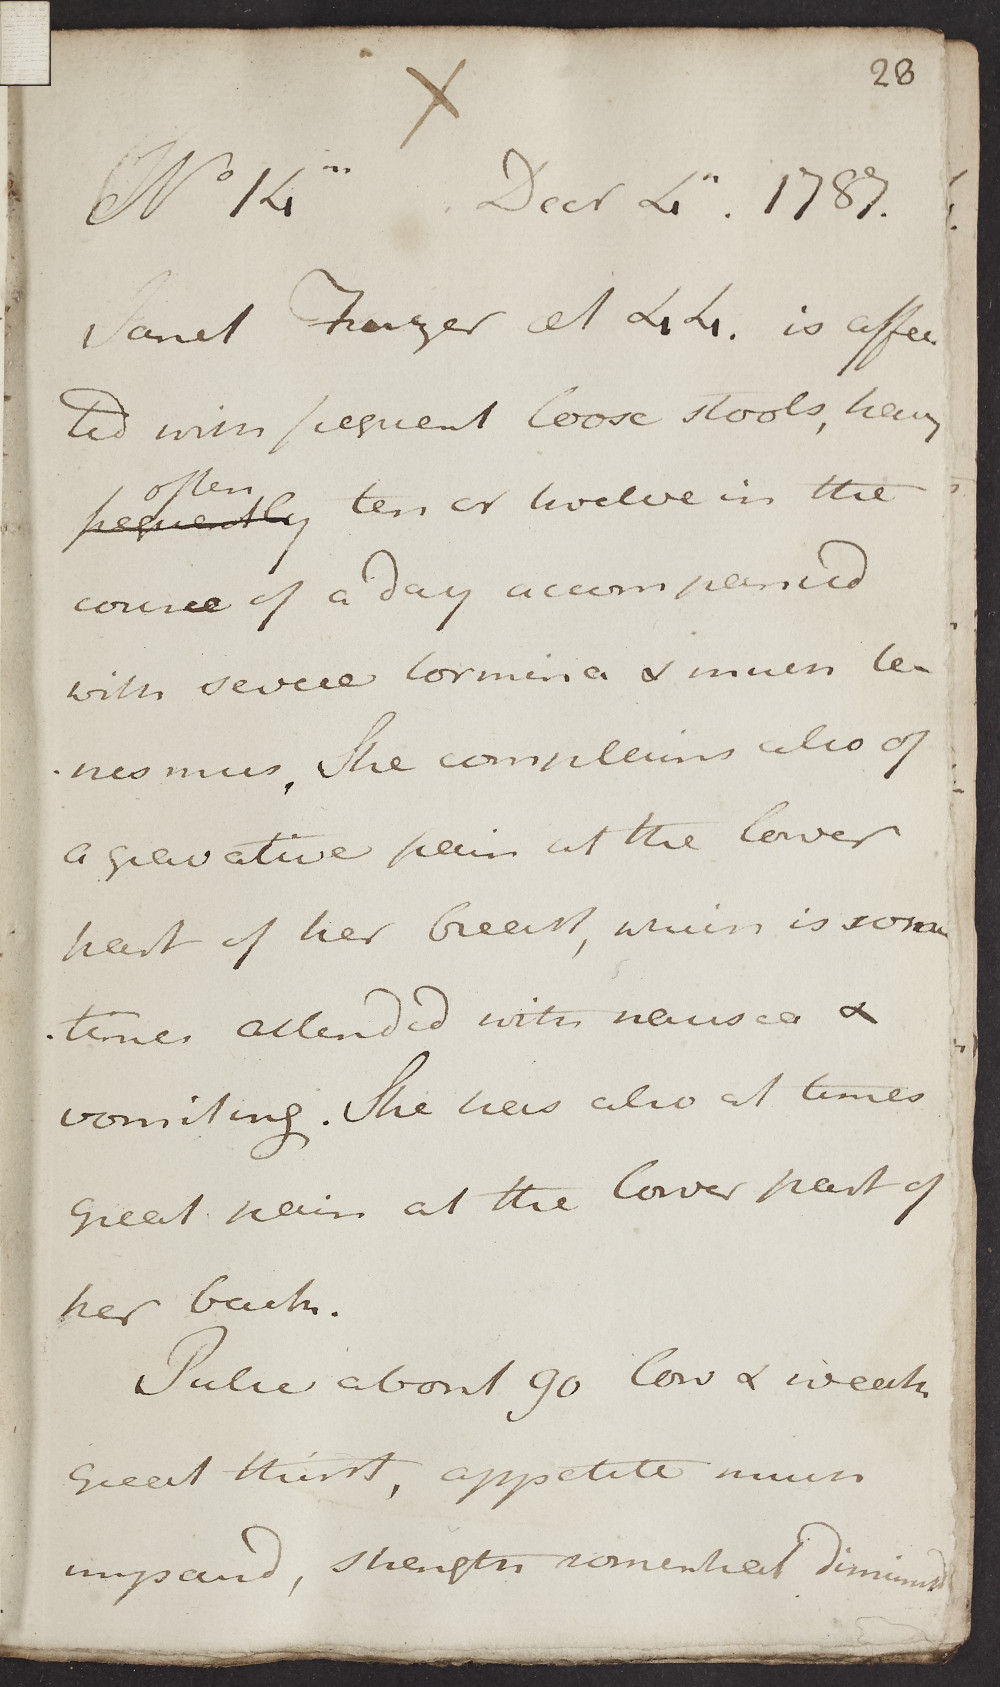 28
No 14th Decr 4th. 1787.
Janet Frazer æt 44. is affec
ted with frequent loose stools, havg
often
frequently ten or twelve in the
course of a day accompanied
with severe tormina & much te-
nesmus, She complains also of
a gravative pain at the lower
part of her breast, which is some
times attended with nausea &
vomiting. She has also at times
great pain at the lower part of
her back.
Pulse about 90 low & weak
great thirst, appetite much
impaird, strength somewhat diminishd